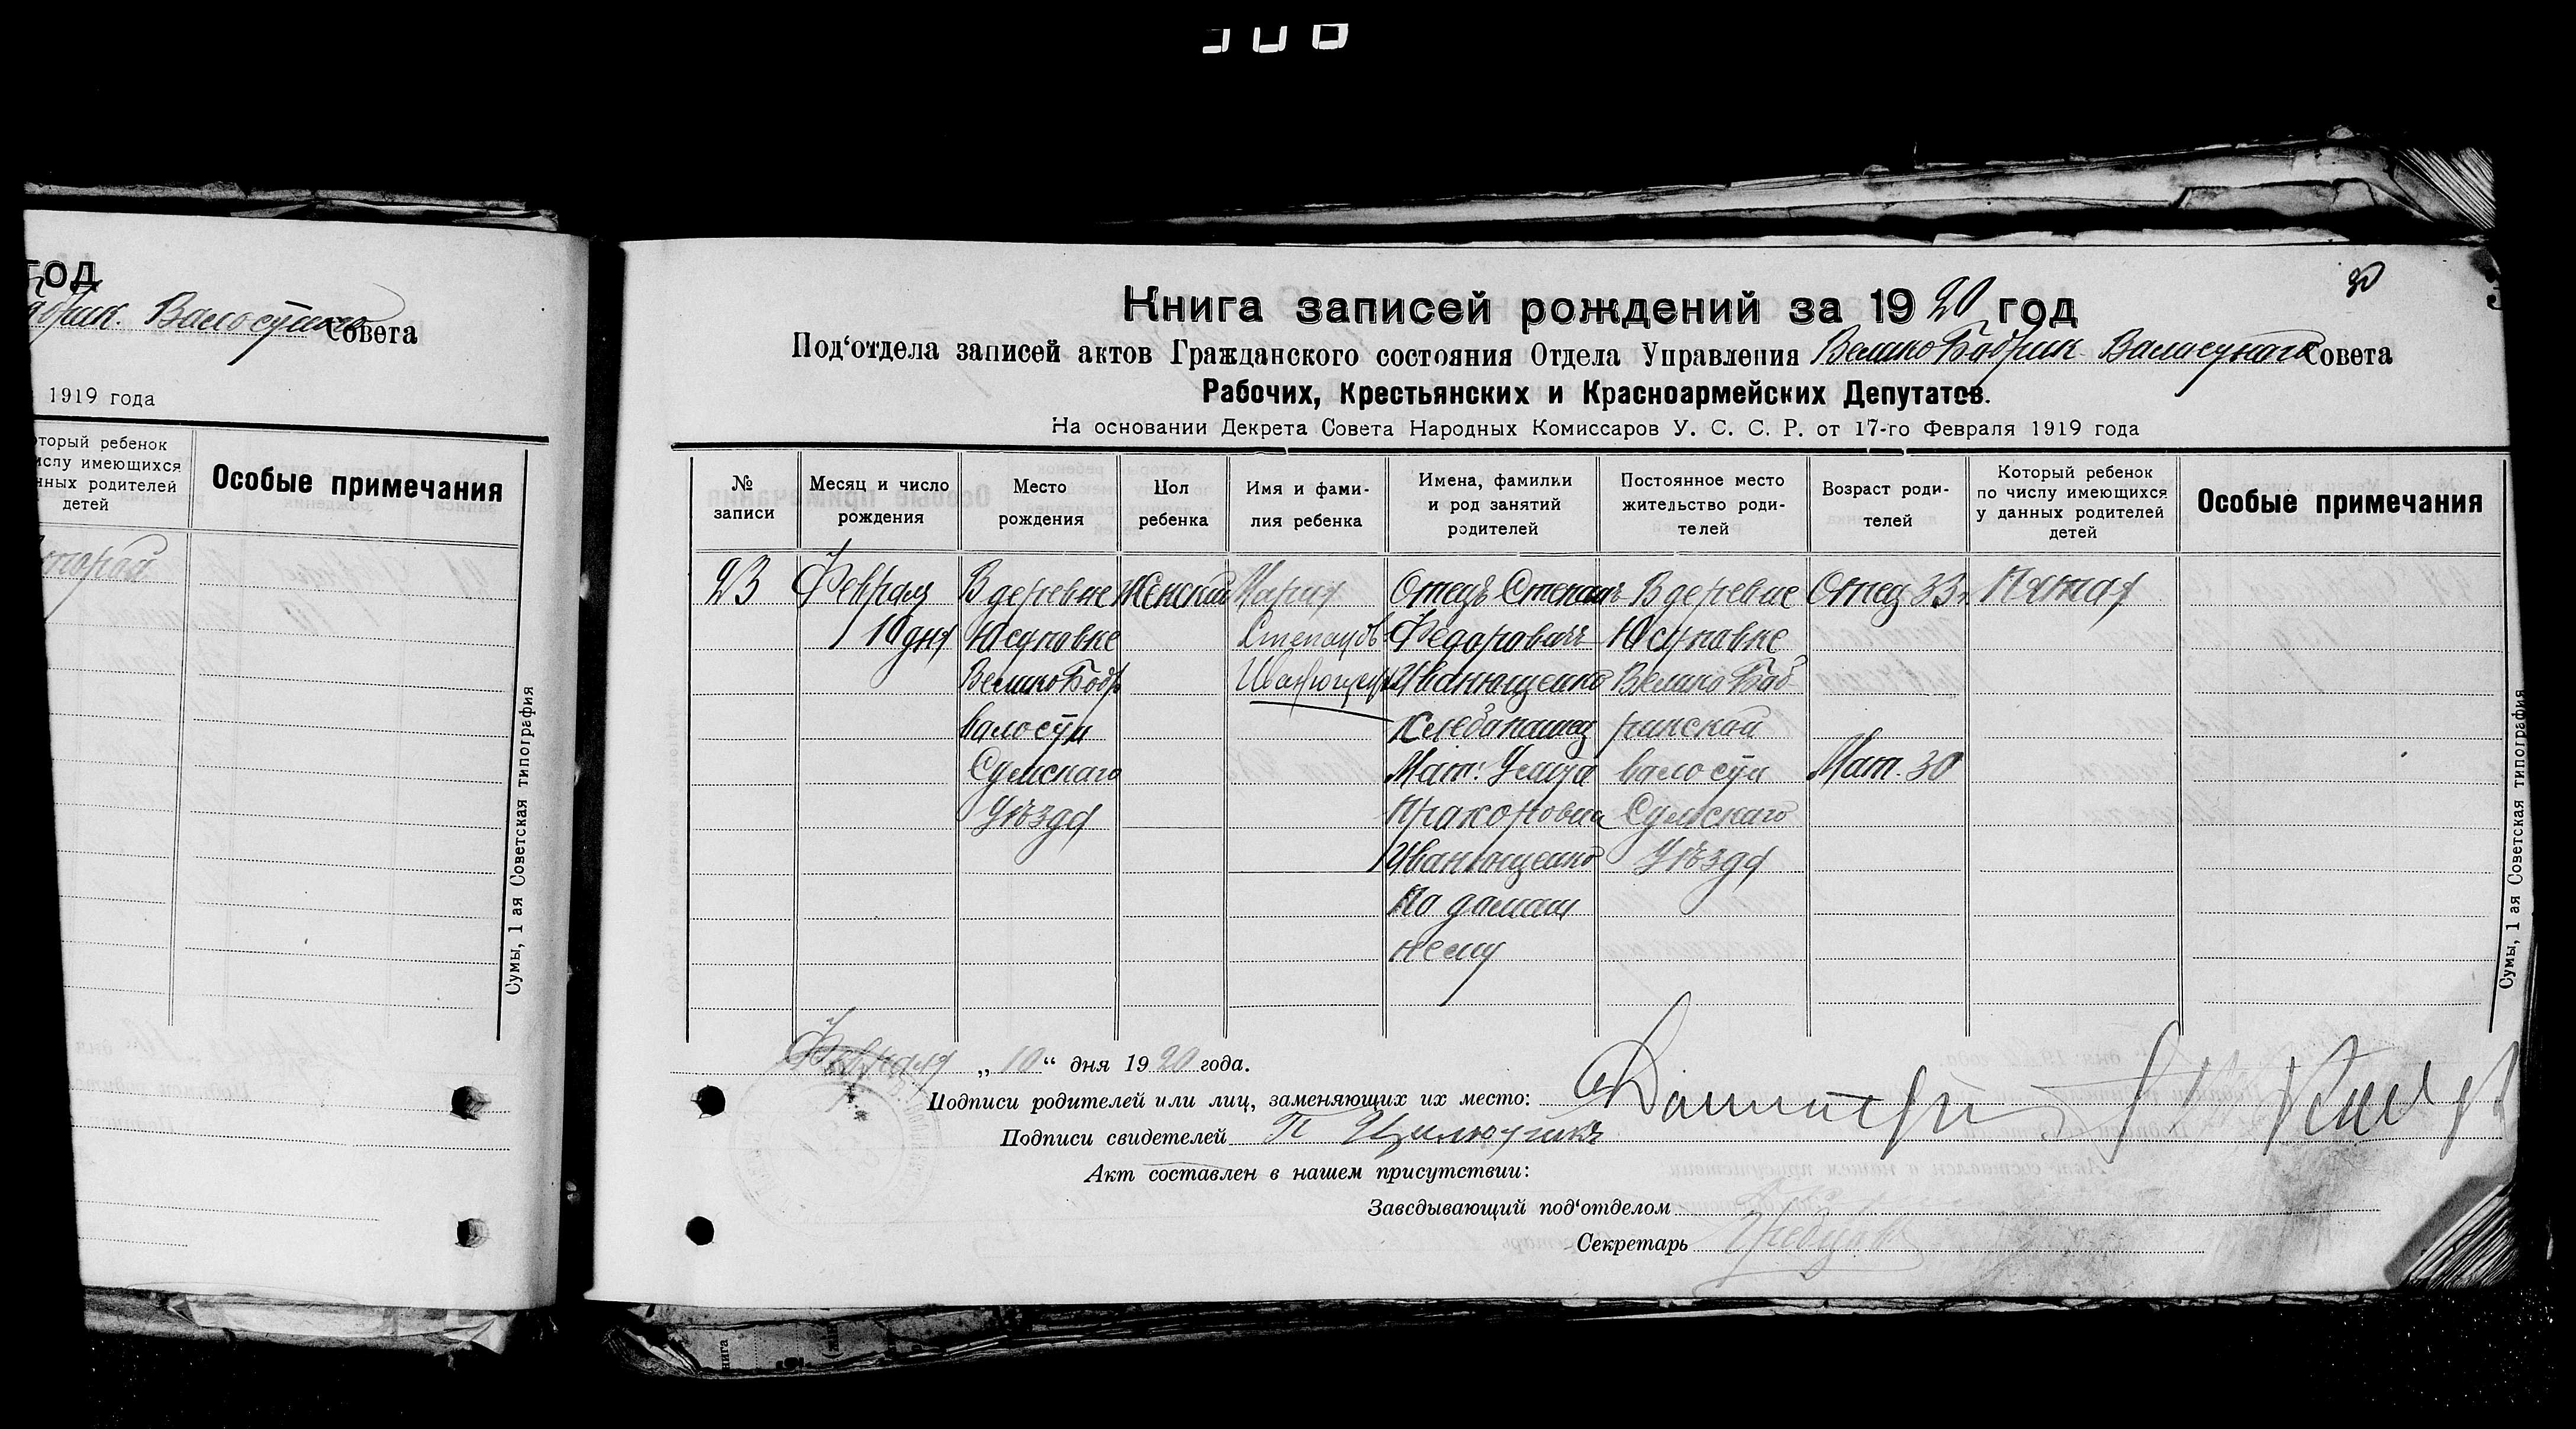 год
абрик. Валосунаго Совета
1919 года
оторый ребенок
ислу имеющихся
нных родителей
детей
Особые примечания
Вторая
Сумы, 1 ая Советская типография
30
Книга записей рождений за 1920 год
Под‘отдела записей актов Гражданского состояния Отдела Управления Велико Бобрик Валасунаго Совета
Рабочих, Крестьянских и Красноармейских Депутатов.
На основании Декрета Совета Народных Комиссаров У. С. С. Р. от 17-го Февраля 1919 года
№
записи
Месяц и число
рождения
Место
рождения
Пол
ребенка
Имя и фами-
лия ребенка
Имена, фамилии
и род занятий
родителей
Постоянное место
жительство роди-
телей
Возраст роди-
телей
Который ребенок
по числу имеющихся
у данных родителей
детей
Особые примечания
23
Февраля
10 дня
В деревне
Юсуповке
Велико Бобр
валосуи
Сумскаго
Уѣзда
Женский
Мария
Степанов
Иванющенко
Отецъ Степанъ
Федоровичъ
Иванющенко
хлебопашец
Мат.
Пракоповна
Иванющенко
По дамаш
нему
В деревне
Юсуповке
Велико Боб
рикской
валосуи
Сумскаго
Уѣзда
Отец 33
Мат. 30
Пятая
Сумы, 1 ая Советская типография
Февраля „10“ дня 1920 года.
Подписи родителей или лиц, заменяющих их место:
Подписи свидетелей П
Акт составлен в нашем присутствии:
Заведывающий под‘отделом
Секретарь